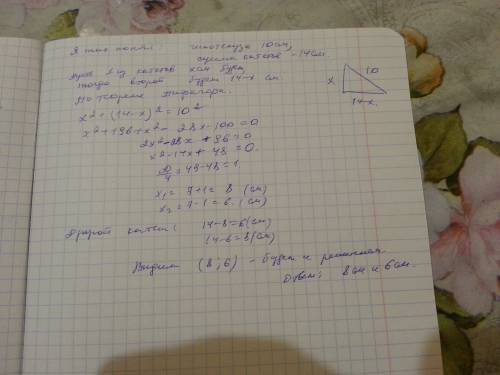 Я так понял гипотенуза 10 см,
сумма катетов - 14 см.
один из катетов x см будет,
тогда второй будет 14-x см
По теореме Пифагора.
x² + (14-x)² = 10²
x² + 196 + x² - 28x - 100 = 0
2x² - 28x + 96 = 0
x² - 14x + 48 = 0.
D/4 = 49 - 48 = 1.
x₁ = 7+1 = 8 (см)
x₂ = 7-1 = 6. (см)
Другой катет: 14-8=6(см)
14-6=8(см)
Видим (8; 6) - будет и решением
Ответ: 8см и 6см.
x
10
14-x